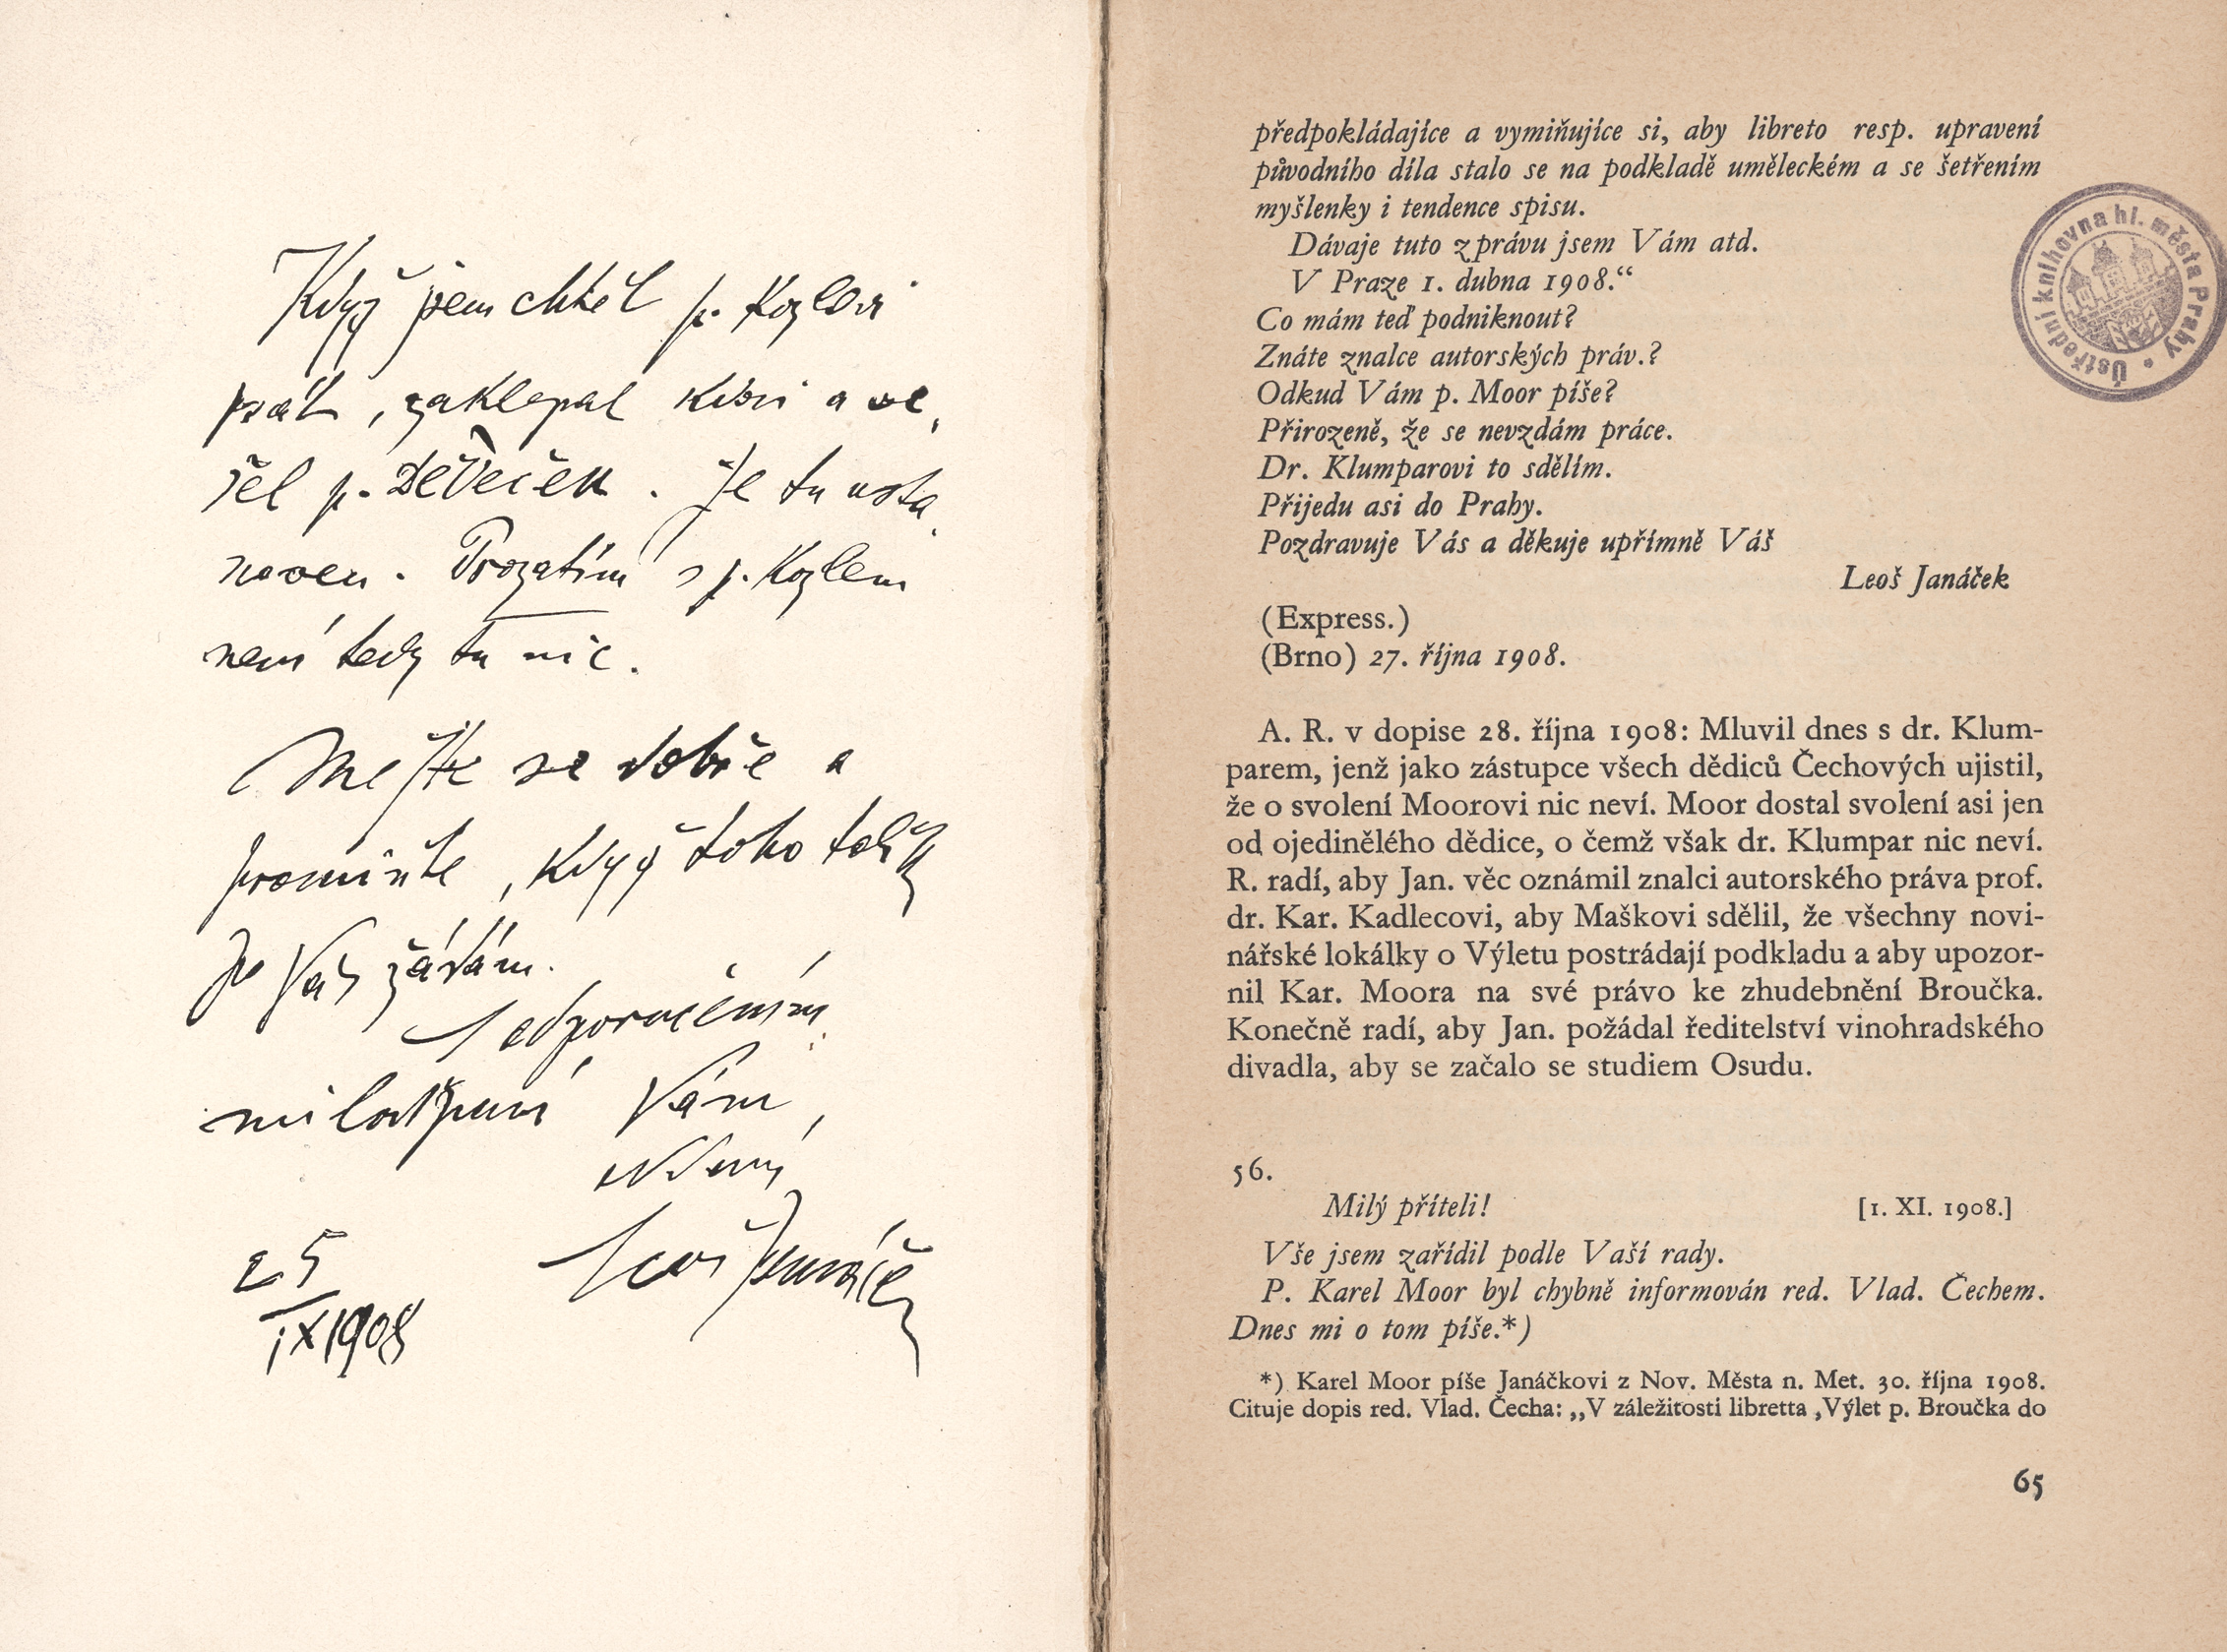 Když jsem chtěl p. Kozlovi
psát, zaklepal kdosi a ve,
šel p. Děveček. Je tu usta
noven. Prozatím s p. Kozlem
není tedy tu nic.
Mějte se dobře a
promiňte, když toho tolik
po Vás žádám.
S odporučením
milostpaní Vám,
oddaný
Leoš Janáček
25
IX 1908
předpokládajíce a vymiňujíce si, aby libreto resp. upravení
původního díla stalo se na podkladě uměleckém a se šetřením
myšlenky i tendence spisu.
Dávaje tuto zprávu jsem Vám atd.
V Praze 1. dubna 1908.“
Co mám teď podniknout?
Znáte znalce autorských práv.?
Odkud Vám p. Moor píše?
Přirozeně, že se nevzdám práce.
Dr. Klumparovi to sdělím.
Přijedu asi do Prahy.
Pozdravuje Vás a děkuje upřímně Váš
Leoš Janáček
(Express.)
(Brno) 27. října 1908.
A. R. v dopise 28. října 1908: Mluvil dnes s dr. Klum-
parem, jenž jako zástupce všech dědiců Čechových ujistil,
že o svolení Moorovi nic neví. Moor dostal svolení asi jen
od ojedinělého dědice, o čemž však dr. Klumpar nic neví.
R. radí, aby Jan. věc oznámil znalci autorského práva prof.
dr. Kar. Kadlecovi, aby Maškovi sdělil, že všechny novi-
nářské lokálky o Výletu postrádají podkladu a aby upozor-
nil Kar. Moora na své právo ke zhudebnění Broučka.
Konečně radí, aby Jan. požádal ředitelství vinohradského
divadla, aby se začalo se studiem Osudu.
56.
Milý příteli! [1. XI. 1908.]
Vše jsem zařídil podle Vaší rady.
P. Karel Moor byl chybně informován red. Vlad. Čechem.
Dnes mi o tom píše.*)
*) Karel Moor píše Janáčkovi z Nov. Města n. Met. 30. října 1908.
Cituje dopis red. Vlad. Čecha: „V záležitosti libretta ‚Výlet p. Broučka do
65
Ústřední knihovna hl. města Prahy •